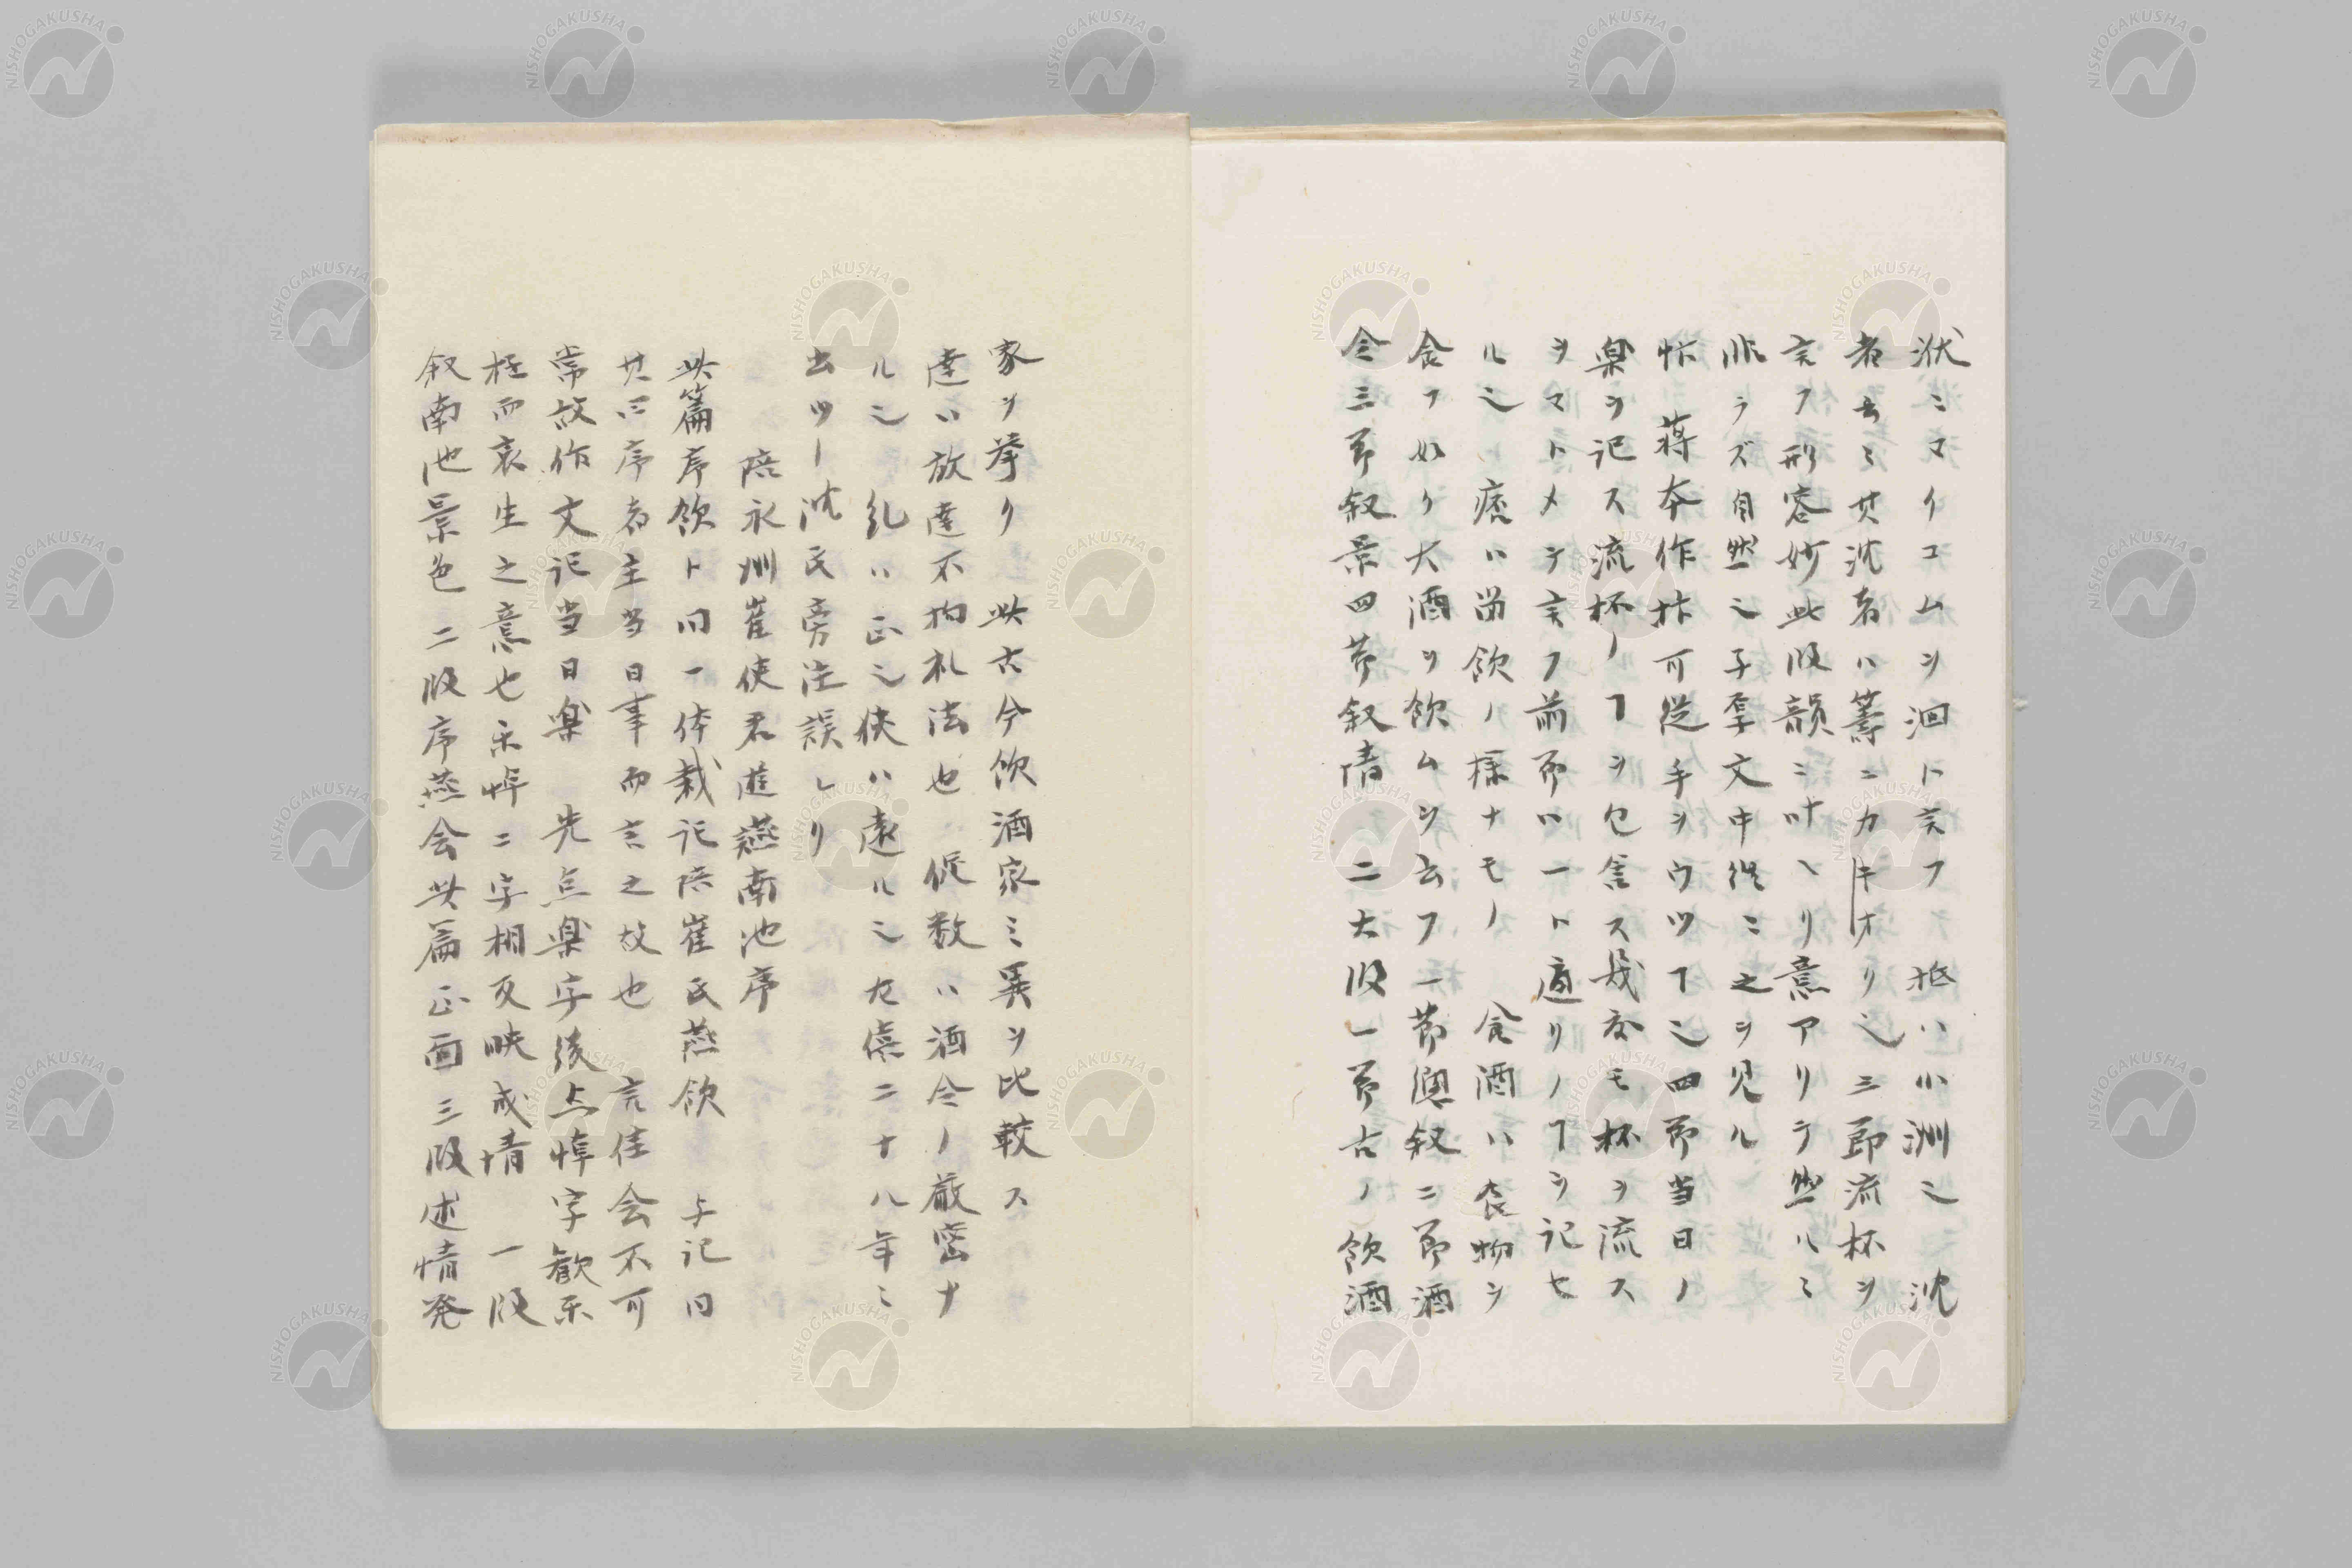 洑ミマイコムヲ洄ト言フ 坻ハ小洲也 沈
者去ミ其沈者ハ籌ニカキオリ也三節流杯ヲ
言フ形容妙此段韻ニ叶ヘリ意アリテ然ルミ
非ラズ自然之子厚文中従ニ之ヲ見ル
忭 蒋本作抃可従手ヲウツ也四節当日ノ
楽ヲ記ス流杯ノヿヲ包含ス幾交モ杯ヲ流ス
ヲマトメテ言フ前節ハ一ト通リノヿヲ記セ
ル也ト痞ハ留飲ノ様ナモノ 食酒ハ食物ヲ
食フ如ク大酒ヲ飲ムヲ云フ一節興叙ニ節酒
令三節叙景四節叙情 二大段一節古ノ飲酒
家ヲ挙ク 此古今飲酒家ミ異ヲ比較ス
達ハ放達不拘礼法也 促数ハ酒令ノ厳密ナ
ル也 乱ハ正之 侠ハ遠ル之左僖二十八年ミ
出ツ 沈氏旁注誤レリ
陪永州崔使君遊讌南池序
此篇序飲ト同一体裁記陪崔氏燕飲 与記同
其 序者主当日事而言之故也 言佳会不可
常故作文記当日楽 先点楽字後点悼字歓楽
極而哀生之意也楽悼二字相反映成情 一段
叙南池景色二段序燕会此篇正面三段述情発